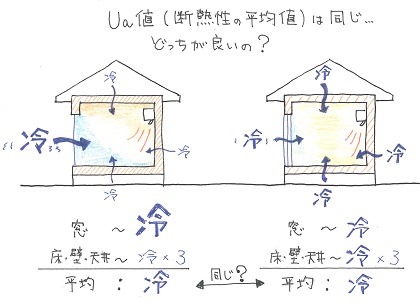 Ua値(断熱性の平均値)は同じ…
どっちが良いの?
冷
冷
冷
冷
冷
冷
冷
冷
窓 〜 冷
床・壁・天井〜 冷×3
平均 : 冷
同じ?
窓 〜 冷
床・壁・天井〜冷×3
平均 : 冷